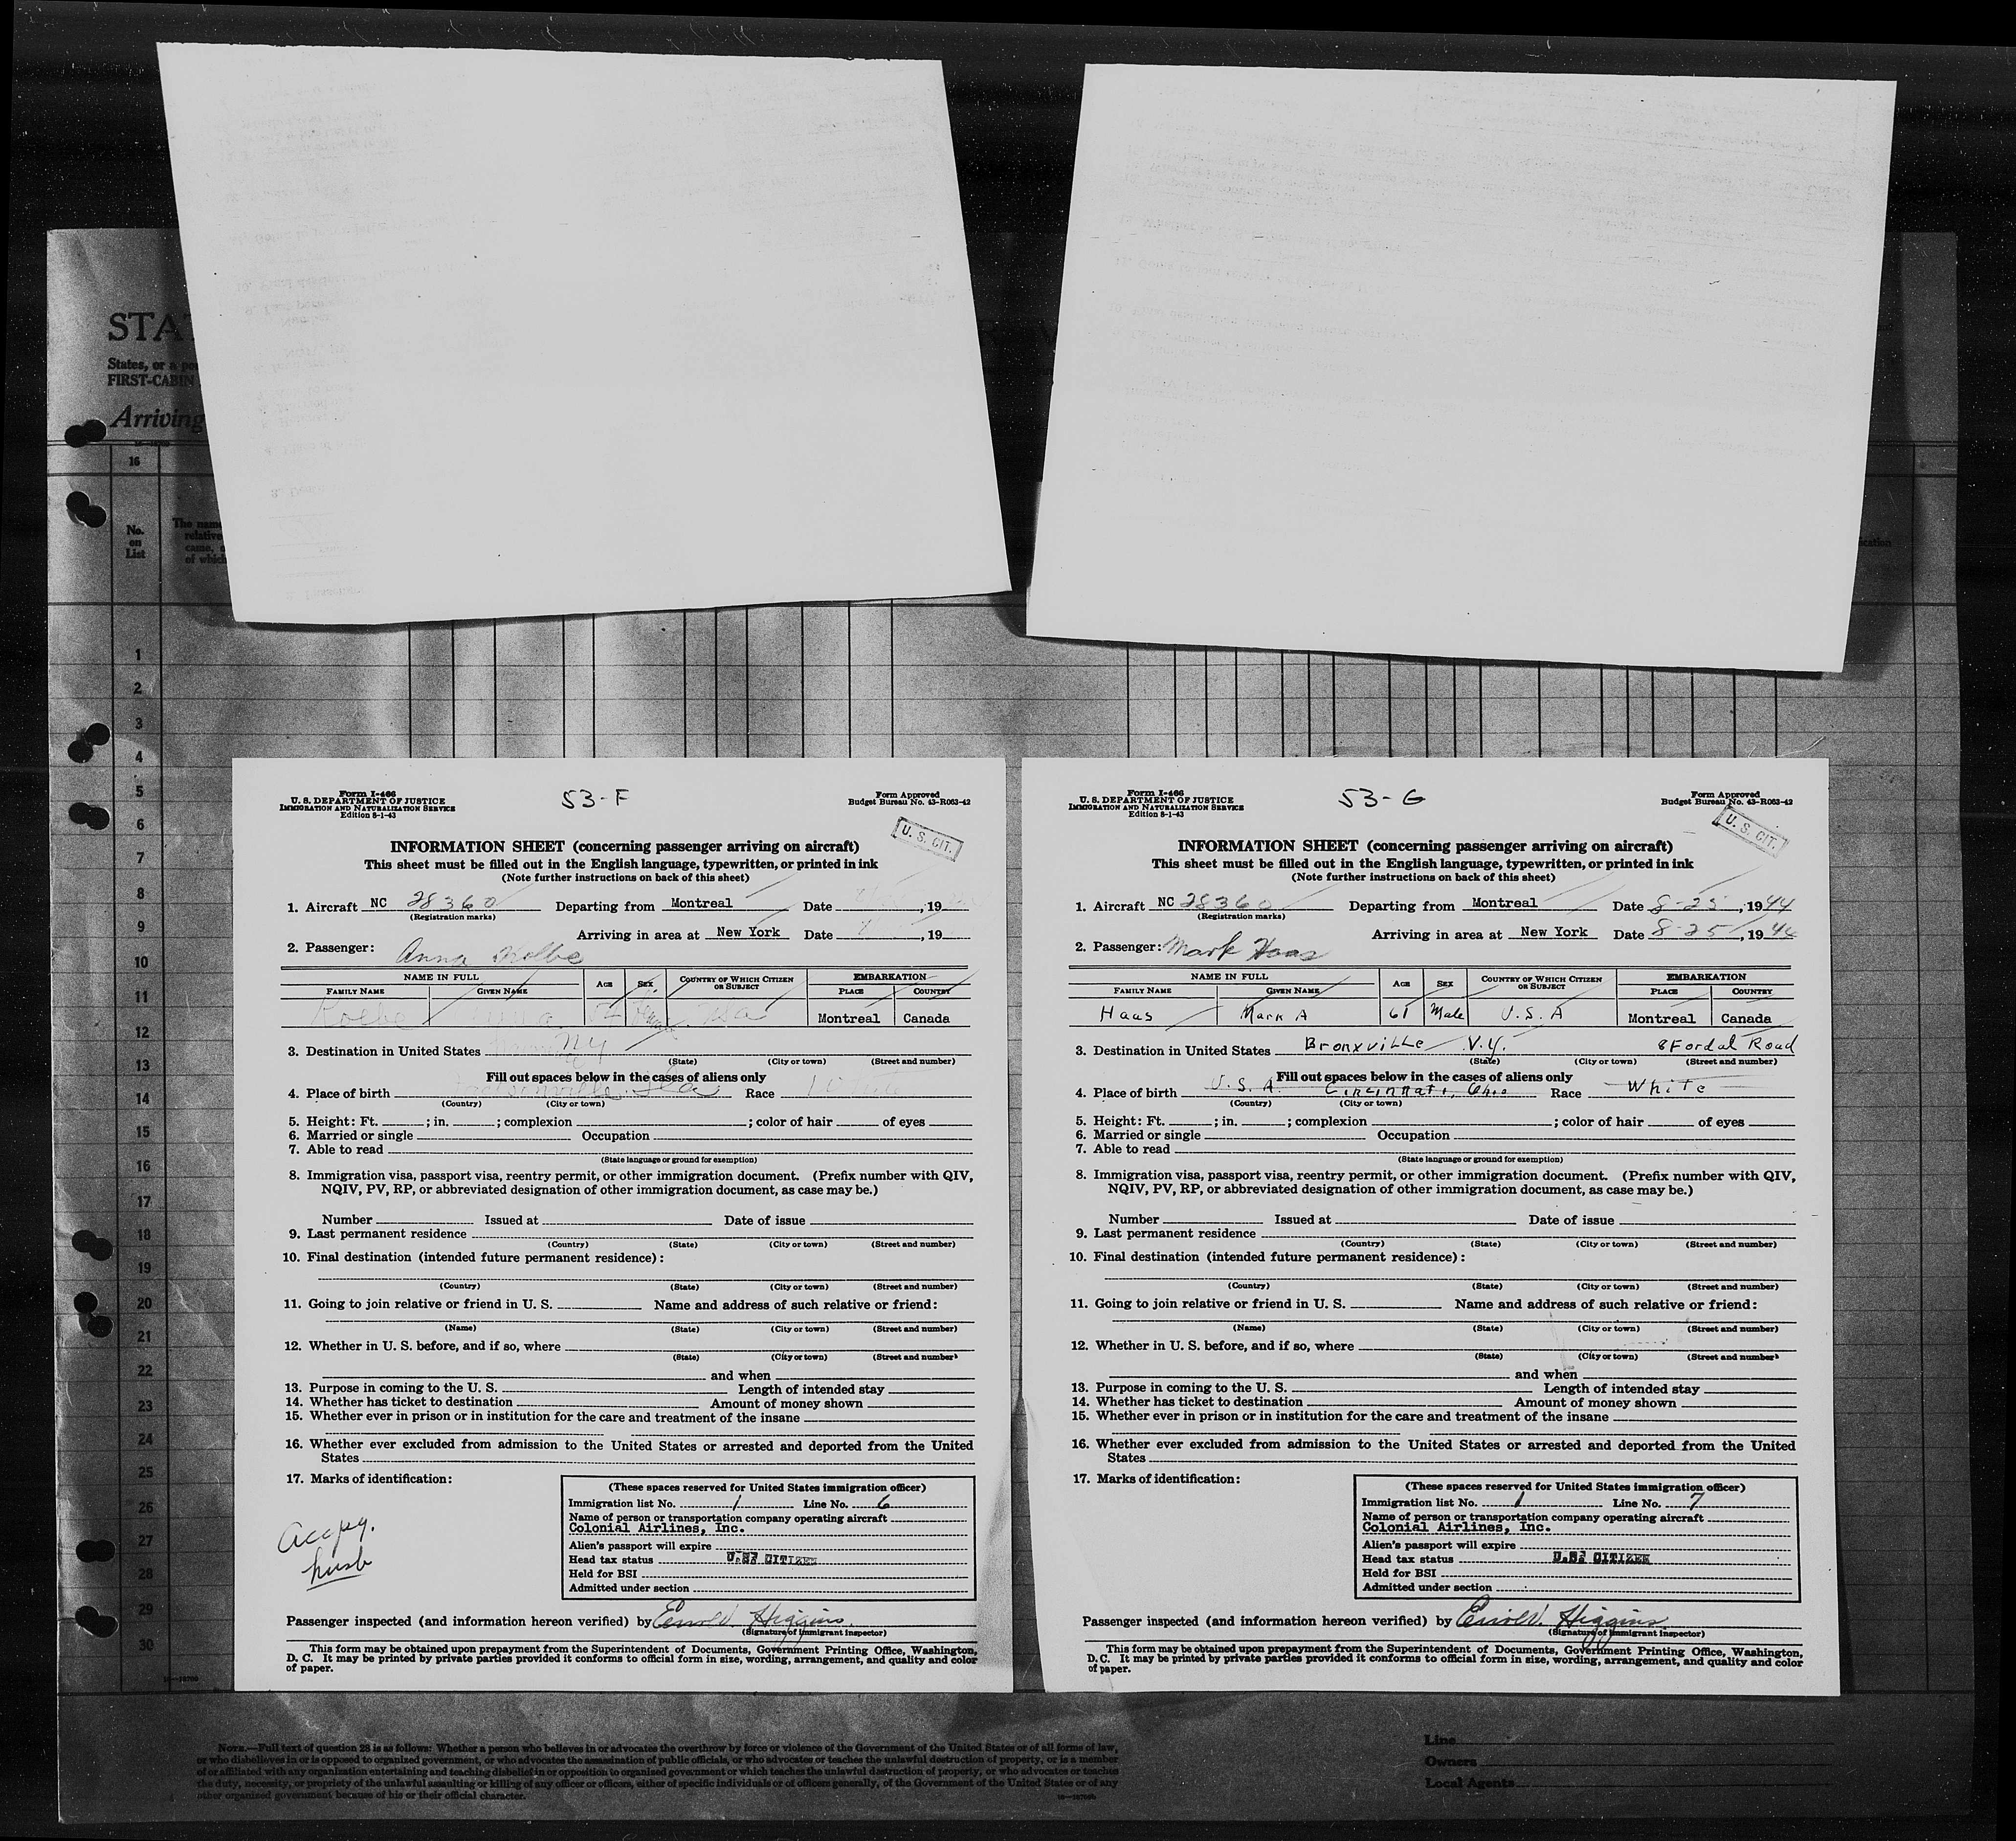 STA
States, or a po
FIRST-CABIN
Arriving
16
No.
on
List
The name
relative
came,
of which
1
2
3
4
5
6
7
8
9
10
11
12
13
14
15
16
17
18
19
20
21
22
23
24
25
26
27
28
29
30
Form I-466
U. S. DEPARTMENT OF JUSTICE
IMMIGRATION AND NATURALIZATION SERVICE
Edition 8-1-43
53-F
Form Approved
Budget Bureau No. 43-R063-42
U. S. CIT.
INFORMATION SHEET (concerning passenger arriving on aircraft)
This sheet must be filled out in the English language, typewritten, or printed in ink
(Note further instructions on back of this sheet)
1. Aircraft NC 28360 Departing from Montreal Date , 19
(Registration marks)
Arriving in area at New York Date , 19
2. Passenger: Anna Kolbe
NAME IN FULL AGE SEX COUNTRY OF WHICH CITIZEN OR SUBJECT EMBARKATION
FAMILY NAME GIVEN NAME PLACE COUNTRY
Kolbe Anna Montreal Canada
3. Destination in United States NY
(State) (City or town) (Street and number)
Fill out spaces below in the cases of aliens only
4. Place of birth Fla Race
(Country) (City or town)
5. Height: Ft. ; in. ; complexion ; color of hair of eyes
6. Married or single Occupation
7. Able to read
(State language or ground for exemption)
8. Immigration visa, passport visa, reentry permit, or other immigration document. (Prefix number with QIV,
NQIV, PV, RP, or abbreviated designation of other immigration document, as case may be.)
Number Issued at Date of issue
9. Last permanent residence
(Country) (State) (City or town) (Street and number)
10. Final destination (intended future permanent residence):
(Country) (State) (City or town) (Street and number)
11. Going to join relative or friend in U. S. Name and address of such relative or friend:
(Name) (State) (City or town) (Street and number)
12. Whether in U. S. before, and if so, where
(State) (City or town) (Street and number)
and when
13. Purpose in coming to the U. S. Length of intended stay
14. Whether has ticket to destination Amount of money shown
15. Whether ever in prison or in institution for the care and treatment of the insane
16. Whether ever excluded from admission to the United States or arrested and deported from the United
States
17. Marks of identification:
Accpg.
husb
(These spaces reserved for United States immigration officer)
Immigration list No. 1 Line No. 6
Name of person or transportation company operating aircraft
Colonial Airlines, Inc.
Alien's passport will expire
Head tax status U.S. CITIZEN
Held for BSI
Admitted under section
Passenger inspected (and information hereon verified) by Errol V. Higgins
(Signature of immigrant inspector)
This form may be obtained upon prepayment from the Superintendent of Documents, Government Printing Office, Washington,
D. C. It may be printed by private parties provided it conforms to official form in size, wording, arrangement, and quality and color
of paper.
Form I-466
U. S. DEPARTMENT OF JUSTICE
IMMIGRATION AND NATURALIZATION SERVICE
Edition 8-1-43
53-G
Form Approved
Budget Bureau No. 43-R063-42
U. S. CIT.
INFORMATION SHEET (concerning passenger arriving on aircraft)
This sheet must be filled out in the English language, typewritten, or printed in ink
(Note further instructions on back of this sheet)
1. Aircraft NC 28360 Departing from Montreal Date 8-25, 1944
(Registration marks)
Arriving in area at New York Date 8-25, 1944
2. Passenger: Mark Haas
NAME IN FULL AGE SEX COUNTRY OF WHICH CITIZEN OR SUBJECT EMBARKATION
FAMILY NAME GIVEN NAME PLACE COUNTRY
Haas Mark A 61 Male U.S.A Montreal Canada
3. Destination in United States Bronxville N.Y. 8 Fordal Road
(State) (City or town) (Street and number)
Fill out spaces below in the cases of aliens only
4. Place of birth U.S.A Cincinnati, Ohio Race White
(Country) (City or town)
5. Height: Ft. ; in. ; complexion ; color of hair of eyes
6. Married or single Occupation
7. Able to read
(State language or ground for exemption)
8. Immigration visa, passport visa, reentry permit, or other immigration document. (Prefix number with QIV,
NQIV, PV, RP, or abbreviated designation of other immigration document, as case may be.)
Number Issued at Date of issue
9. Last permanent residence
(Country) (State) (City or town) (Street and number)
10. Final destination (intended future permanent residence):
(Country) (State) (City or town) (Street and number)
11. Going to join relative or friend in U. S. Name and address of such relative or friend:
(Name) (State) (City or town) (Street and number)
12. Whether in U. S. before, and if so, where
(State) (City or town) (Street and number)
and when
13. Purpose in coming to the U. S. Length of intended stay
14. Whether has ticket to destination Amount of money shown
15. Whether ever in prison or in institution for the care and treatment of the insane
16. Whether ever excluded from admission to the United States or arrested and deported from the United
States
17. Marks of identification:
(These spaces reserved for United States immigration officer)
Immigration list No. 1 Line No. 7
Name of person or transportation company operating aircraft
Colonial Airlines, Inc.
Alien's passport will expire
Head tax status U.S. CITIZEN
Held for BSI
Admitted under section
Passenger inspected (and information hereon verified) by Errol V. Higgins
(Signature of immigrant inspector)
This form may be obtained upon prepayment from the Superintendent of Documents, Government Printing Office, Washington,
D. C. It may be printed by private parties provided it conforms to official form in size, wording, arrangement, and quality and color
of paper.
NOTE.—Full text of question 28 is as follows: Whether a person who believes in or advocates the overthrow by force or violence of the Government of the United States or of all forms of law,
or who disbelieves in or is opposed to organized government, or who advocates the assassination of public officials, or who advocates or teaches the unlawful destruction of property, or is a member
of or affiliated with any organization entertaining and teaching disbelief in or opposition to organized government or which teaches the unlawful destruction of property, or who advocates or teaches
the duty, necessity, or propriety of the unlawful assaulting or killing of any officer or officers, either of specific individuals or of officers generally, of the Government of the United States or of any
other organized government because of his or their official character.
Line
Owners
Local Agents